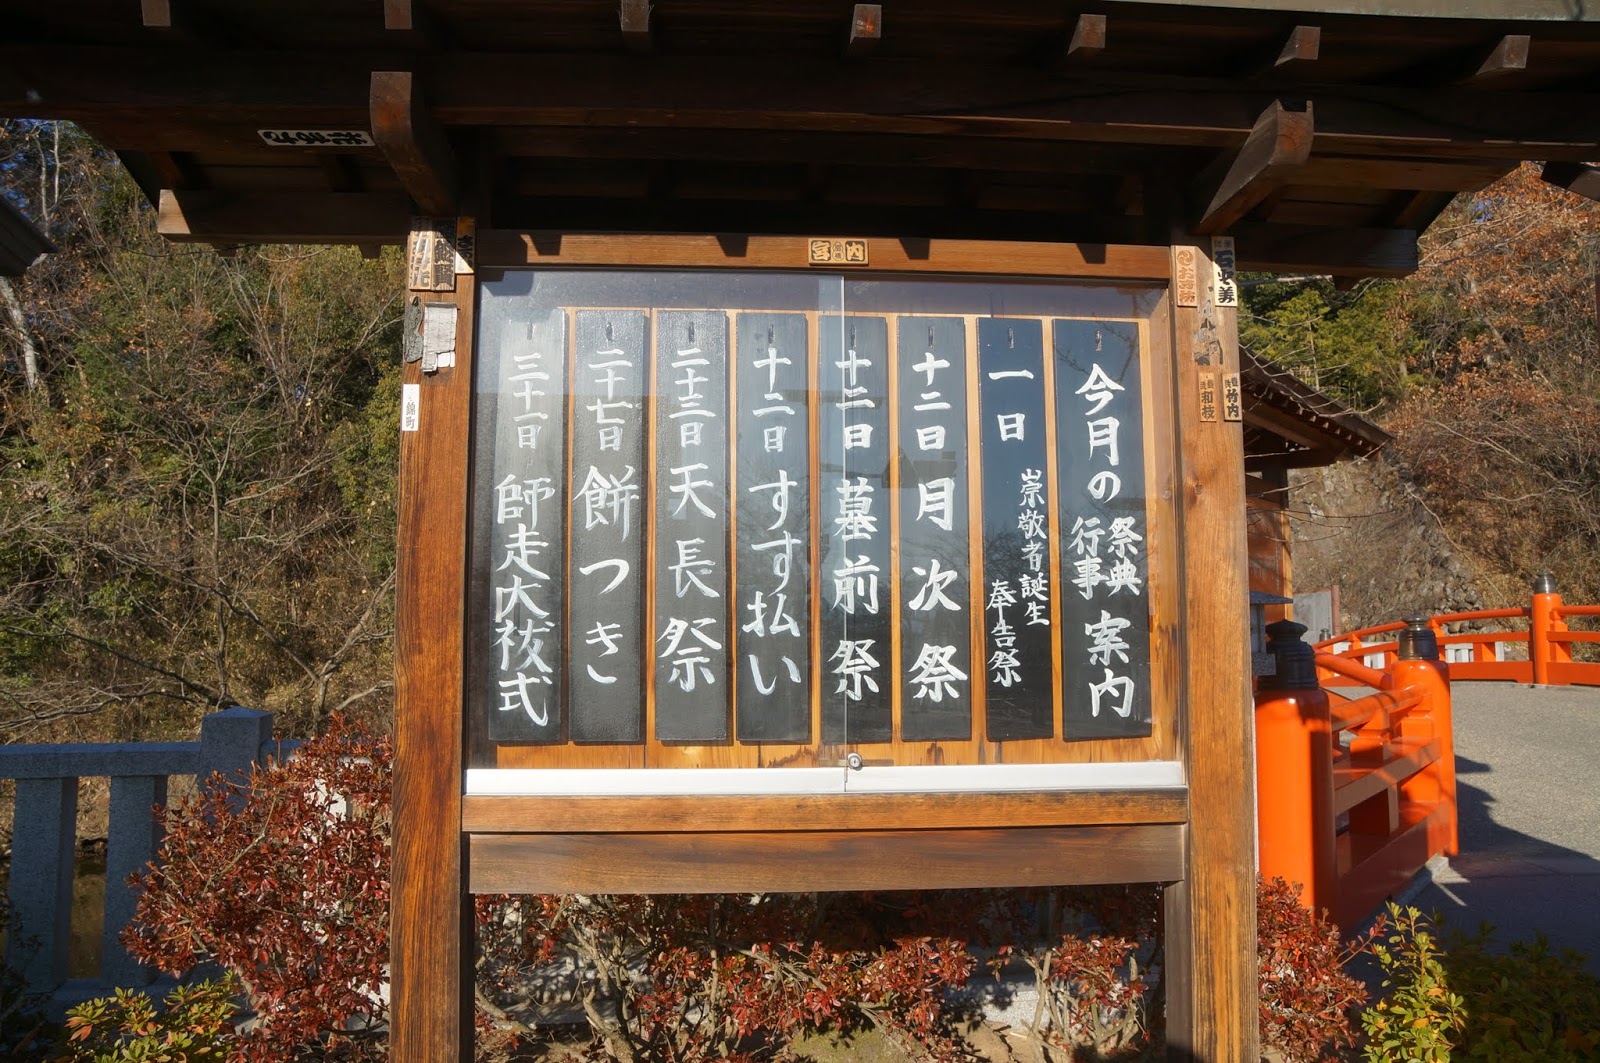 今月の祭典行事案内
一日 崇敬者誕生奉告祭
十二日 月次祭
十二日 墓前祭
十二日 すす払い
二十三日 天長祭
二十七日 餅つき
三十一日 師走大祓式
宮内
錦町
竹内
和枝